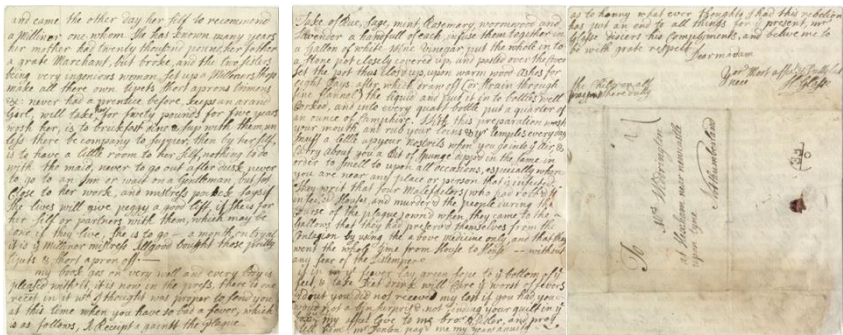 and came the other day her self to recomend
a Millinor one whom she has known many years
her mother had twenty thousand pounds her father
a grate Marchant, but broke, and the two sisters
being very ingenious woman, set up a Millinors shop
make all there own short aprons
never had a prentice before, keeps an
Garl, will take for fivety pounds for five years
wash her, is to breckfast dine & sup with them, un
less there be company to supper, then by her self,
is to have a little room to her self, nothing to do
with the maid, never to go out after dusk, never
to go to an Inn or wait on a Gentleman, but set
close to her work, and mistress says if
She lives will give peggy a good lift, if she is for
her self or partners with them, which may be
one if they live, she is to go a month on
it is Millinor mistress bought those pretty
& short apron off.
my book gos on very well and every body is
pleased with it, it is now in the press, there is one
recet in it w.ch I thought was proper to send you
at this time when you have so bad a fever, which
is as follows, A Receipt againtt the plague
Take of Rue, sage, mint, Rosemary, wormwood and
Lavender a handfull of each, infuse them together in
a Gallon of white Wine Vinegar put the whole in to
a stone pot closely covered up, and pasted over the cover
set the pot thus closd up, upon warm wood ashes for
Eight days, after which draw off (or strain through
fine flannel) the liquid and put it in to bottles well
Corked, and into every quart bottle put a quarter of
an ounce of Camphire. With this preparation wash
your mouth, and rub your loins & y.r temples every day
snuff a little up your nostrels when you go into y.e air, &
carry about you a bit of spunge dipd in the same in
order to smell to upon all occasions, especially when
you are near any place or person that is infected.
They writ that four Malefactors who had robbed y.e
infected Houses and murdered the people during the
Curse of the plague ownd when they came to the
Gallows that they had preserved themselves from the
Contagion by using the above medicine only, and that they
went the whole time from House to House without
any fear of the distemper
if in y.r fever lay green to y.e bottom of y.e
feet, & take that drink will Cure y.e worst of fevers
I dout you did not receive my last if you had you
would not a bin surprized not finding your quilt in y.e
my affect. love to
tell him pay me my years
as to hanny what ever thoughts I had this rebelion
has put an end to all things for y.e present, mr
Glasse discirs his Compliments, and beleve me to
be with grate respect
Dear madam
Your Most affect. & Dutyfull
neice H Glasse
the Children all
present there duty
To
Mrs Widdrington
at Hexham near newcastle
upon Tyne
Northumberland